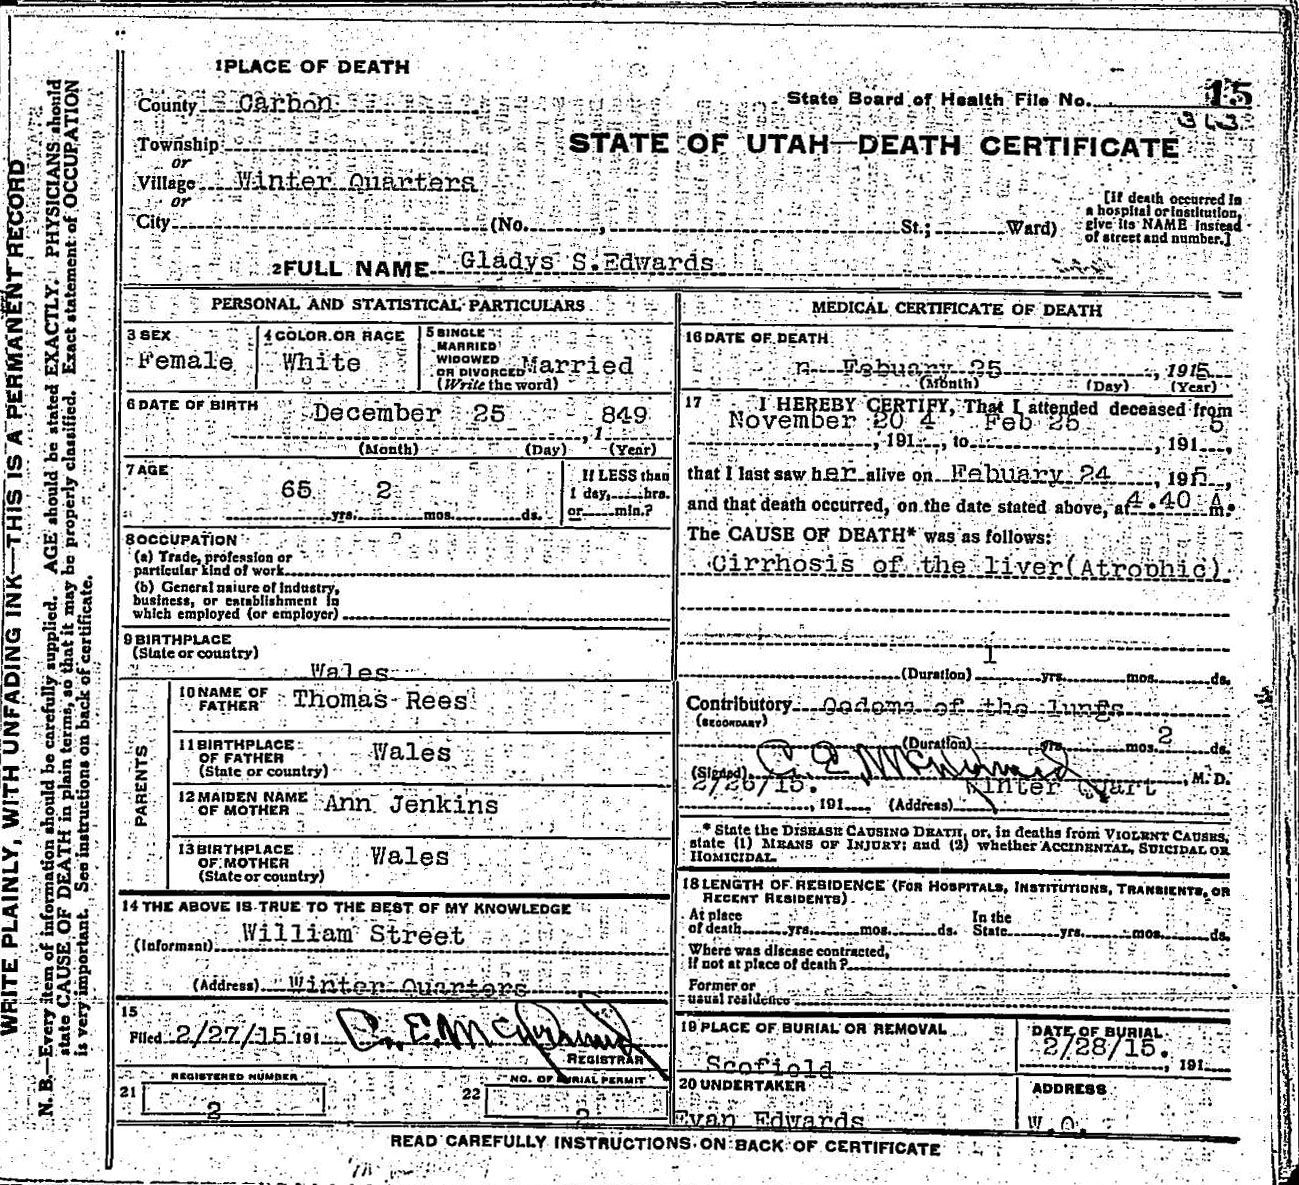 1 PLACE OF DEATH
County Carbon
State Board of Health File No. 15
313
Township
or
Village Winter Quarters
or
City (No. , St.; Ward)
STATE OF UTAH—DEATH CERTIFICATE
[If death occurred in
a hospital or institution,
give its NAME instead
of street and number.]
2 FULL NAME Gladys S.Edwards
PERSONAL AND STATISTICAL PARTICULARS
3 SEX
Female
4 COLOR OR RACE
White
5 SINGLE
MARRIED
WIDOWED
OR DIVORCED Married
(Write the word)
6 DATE OF BIRTH
December 25 , 1849
(Month) (Day) (Year)
7 AGE
65 yrs. 2 mos. ds.
If LESS than
1 day, hrs.
or min.?
8 OCCUPATION
(a) Trade, profession or
particular kind of work
(b) General nature of industry,
business, or establishment in
which employed (or employer)
9 BIRTHPLACE
(State or country)
Wales
PARENTS
10 NAME OF
FATHER Thomas Rees
11 BIRTHPLACE
OF FATHER
(State or country) Wales
12 MAIDEN NAME
OF MOTHER Ann Jenkins
13 BIRTHPLACE
OF MOTHER
(State or country) Wales
14 THE ABOVE IS TRUE TO THE BEST OF MY KNOWLEDGE
(Informant) William Street
(Address) Winter Quarters
15
Filed 2/27/15 191
REGISTRAR
REGISTERED NUMBER
21 2
NO. OF BURIAL PERMIT
22 2
MEDICAL CERTIFICATE OF DEATH
16 DATE OF DEATH
Febuary 25 , 1915
(Month) (Day) (Year)
17 I HEREBY CERTIFY, That I attended deceased from
November 20 , 1914, to Feb 25 , 1915
that I last saw her alive on Febuary 24 , 1915,
and that death occurred, on the date stated above, at 4.40 A m.
The CAUSE OF DEATH* was as follows:
Cirrhosis of the liver(Atrophic)
(Duration) 1 yrs. mos. ds.
Contributory Oedema of the lungs
(SECONDARY)
(Duration) yrs. mos. 2 ds.
(Signed) , M. D.
2/26/15. , 191 (Address) Winter Quart
* State the DISEASE CAUSING DEATH, or, in deaths from VIOLENT CAUSES,
state (1) MEANS OF INJURY; and (2) whether ACCIDENTAL, SUICIDAL OR
HOMICIDAL.
18 LENGTH OF RESIDENCE (FOR HOSPITALS, INSTITUTIONS, TRANSIENTS, OR
RECENT RESIDENTS).
At place
of death yrs. mos. ds.
In the
State yrs. mos. ds.
Where was disease contracted,
if not at place of death?
Former or
usual residence
19 PLACE OF BURIAL OR REMOVAL
Scofield
DATE OF BURIAL
2/28/15. , 191
20 UNDERTAKER
Evan Edwards
ADDRESS
W.Q.
READ CAREFULLY INSTRUCTIONS ON BACK OF CERTIFICATE
WRITE PLAINLY, WITH UNFADING INK—THIS IS A PERMANENT RECORD
N. B.—Every item of information should be carefully supplied. AGE should be stated EXACTLY. PHYSICIANS should
state CAUSE OF DEATH in plain terms, so that it may be properly classified. Exact statement of OCCUPATION
is very important. See instructions on back of certificate.